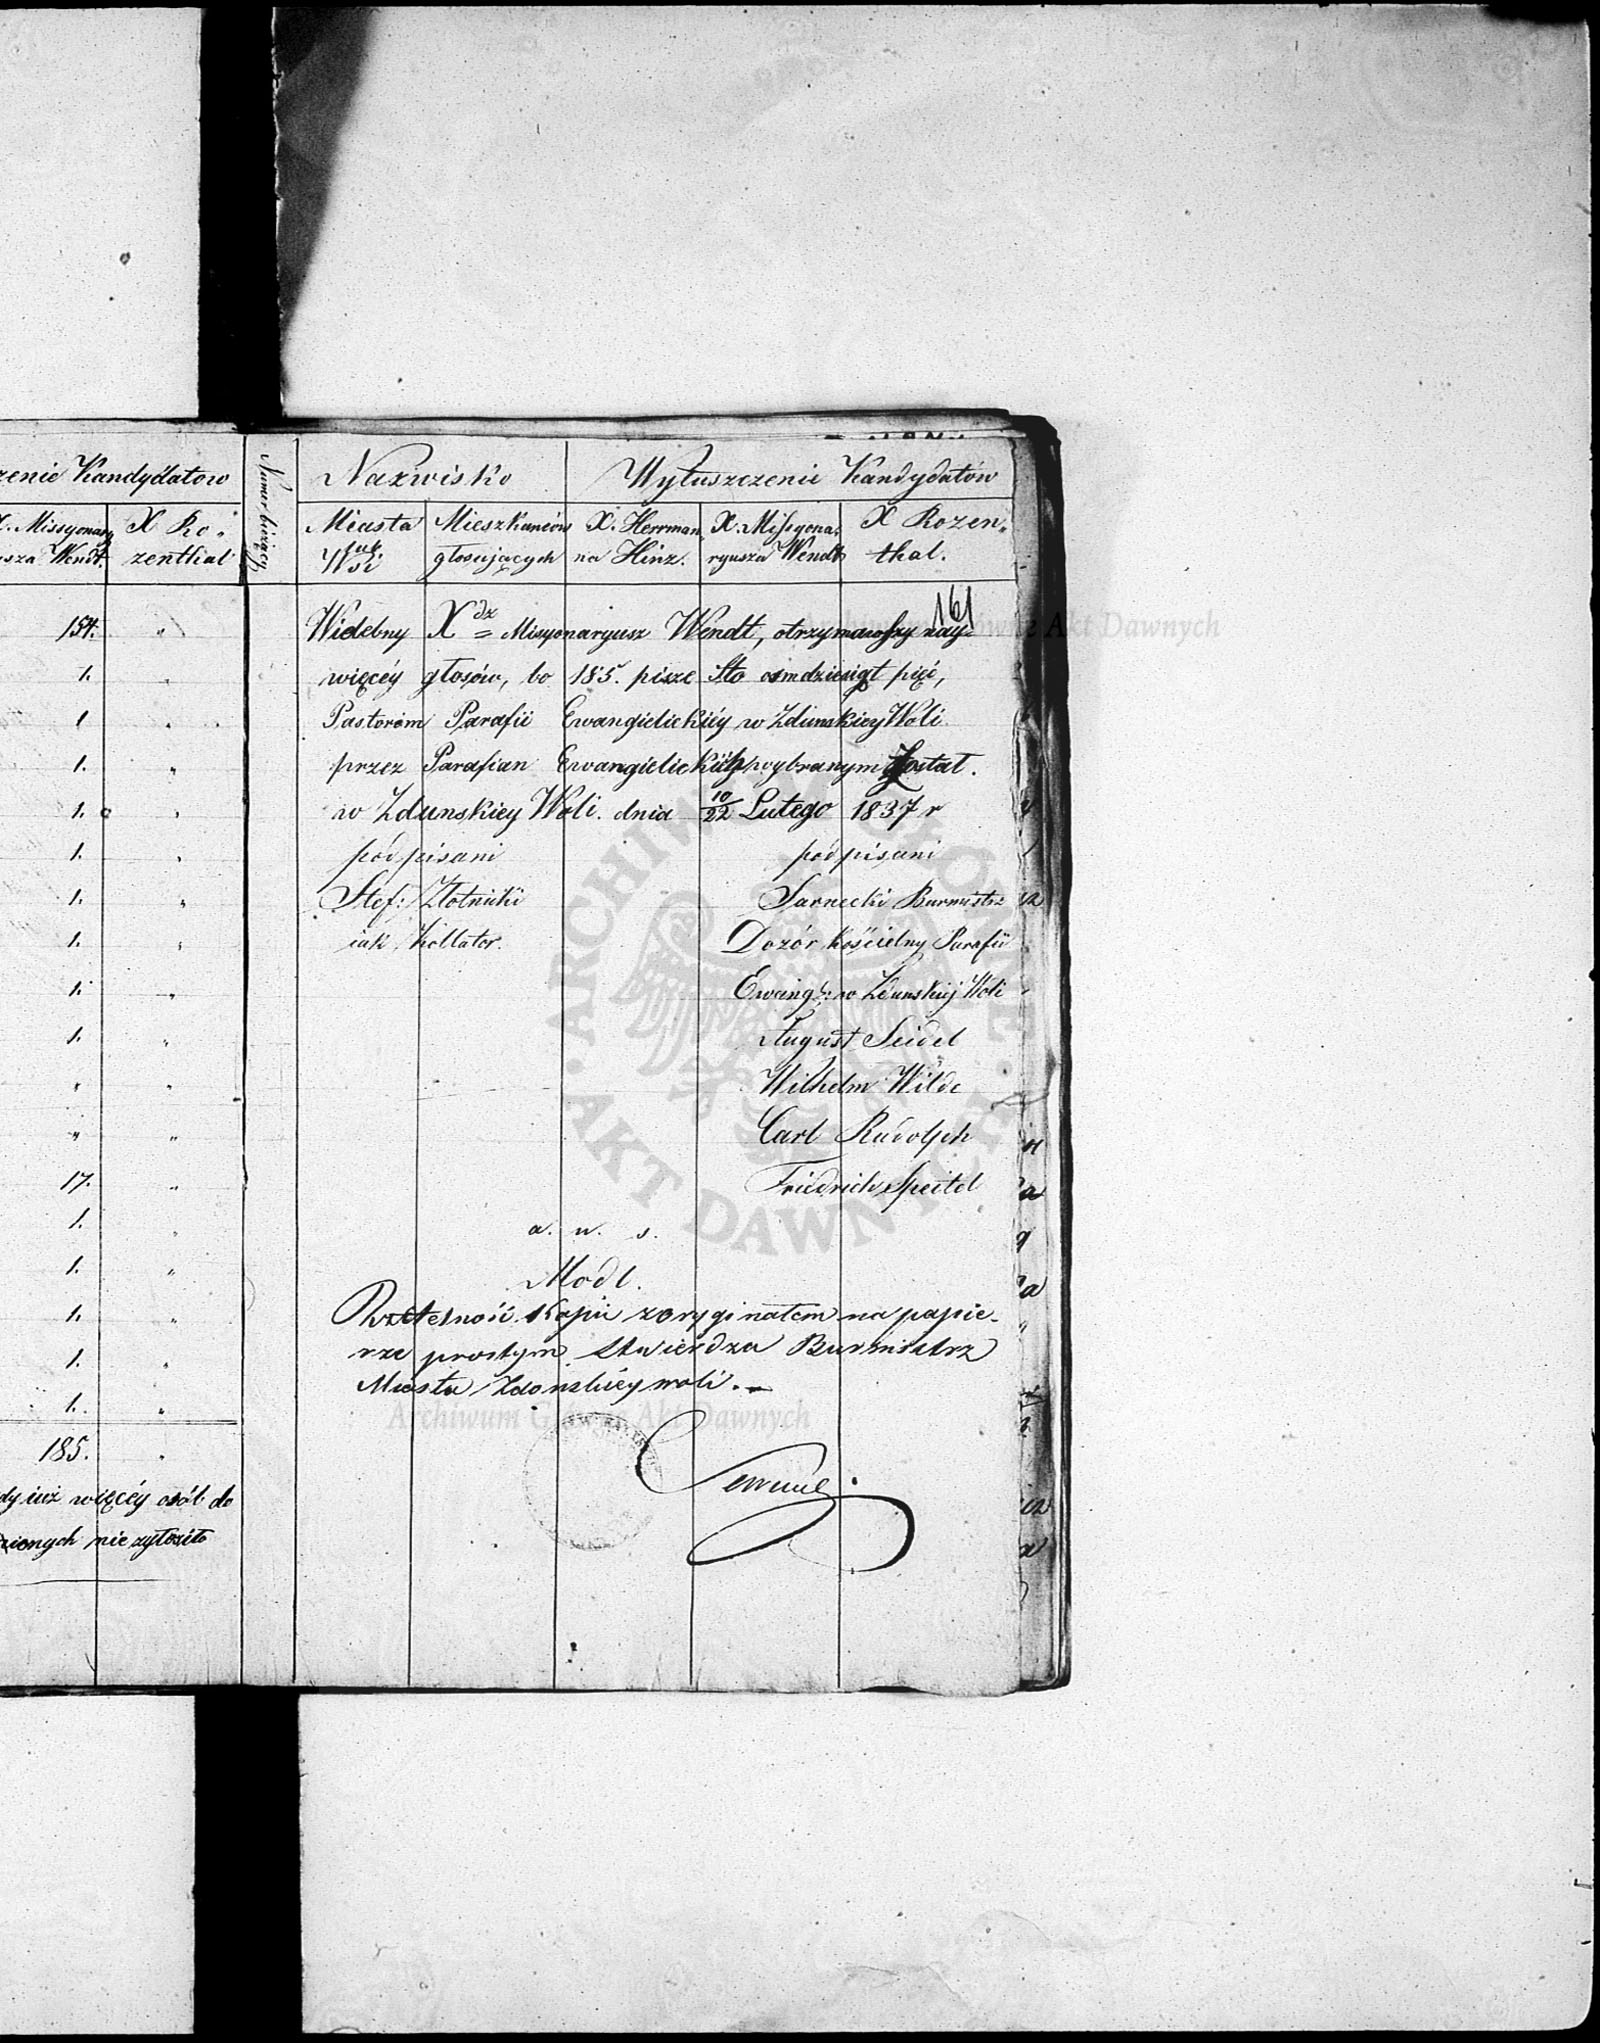 zenie Kandydatow
X. Missyonary
usza Wendt.
X Ro„
zenthal
154. „
1. „
1 „
1. „
1. „
1. „
1. „
1. „
1. „
1. „
„ „
„ „
17. „
1. „
1. „
1. „
1. „
1. „
185. „
dy iuż więcéy osób do
zionych nie zgłosiło
Numer bieżący
Nazwisko
Wyłuszczenie Kandydatów
Miasta
lub
Wsi
Mieszkańców
głosujących
X. Herrman
na Hinz.
X. Missyona„
ryusza Wendt
X Rozen„
thal.
161
Wielebny X dz Misyonaryusz Wendt, otrzymawszy nay„
więcéy głosów, bo 185. pisze Sto osmdziesiąt pięć,
Pastorem Parafii Ewangielickiéy w Zdunskiey Woli
przez Parafian Ewangielickich wybranym Został.
w Zdunskiey Woli. dnia 10/22 Lutego 1837 r
podpisani
podpisani
Stef: Złotnicki
iak Kollator.
Sarnecki Burmistrz
Dozór Kościelny Parafii
Ewang: w Zdunskiéj Woli
August Seidel
Wilhelm Wilde
Carl Rudolph
Friedrich Speitel
a. n. s.
Modl.
Rzetelność Kopii z oryginałem na papie„
rze prostym Stwierdza Burmistrz
Miasta Zdonskiéy woli.
Archiwum Główne Akt Dawnych
Archiwum Główne Akt Dawnych
ARCHIWUM GŁÓWNE • AKT DAWNYCH •